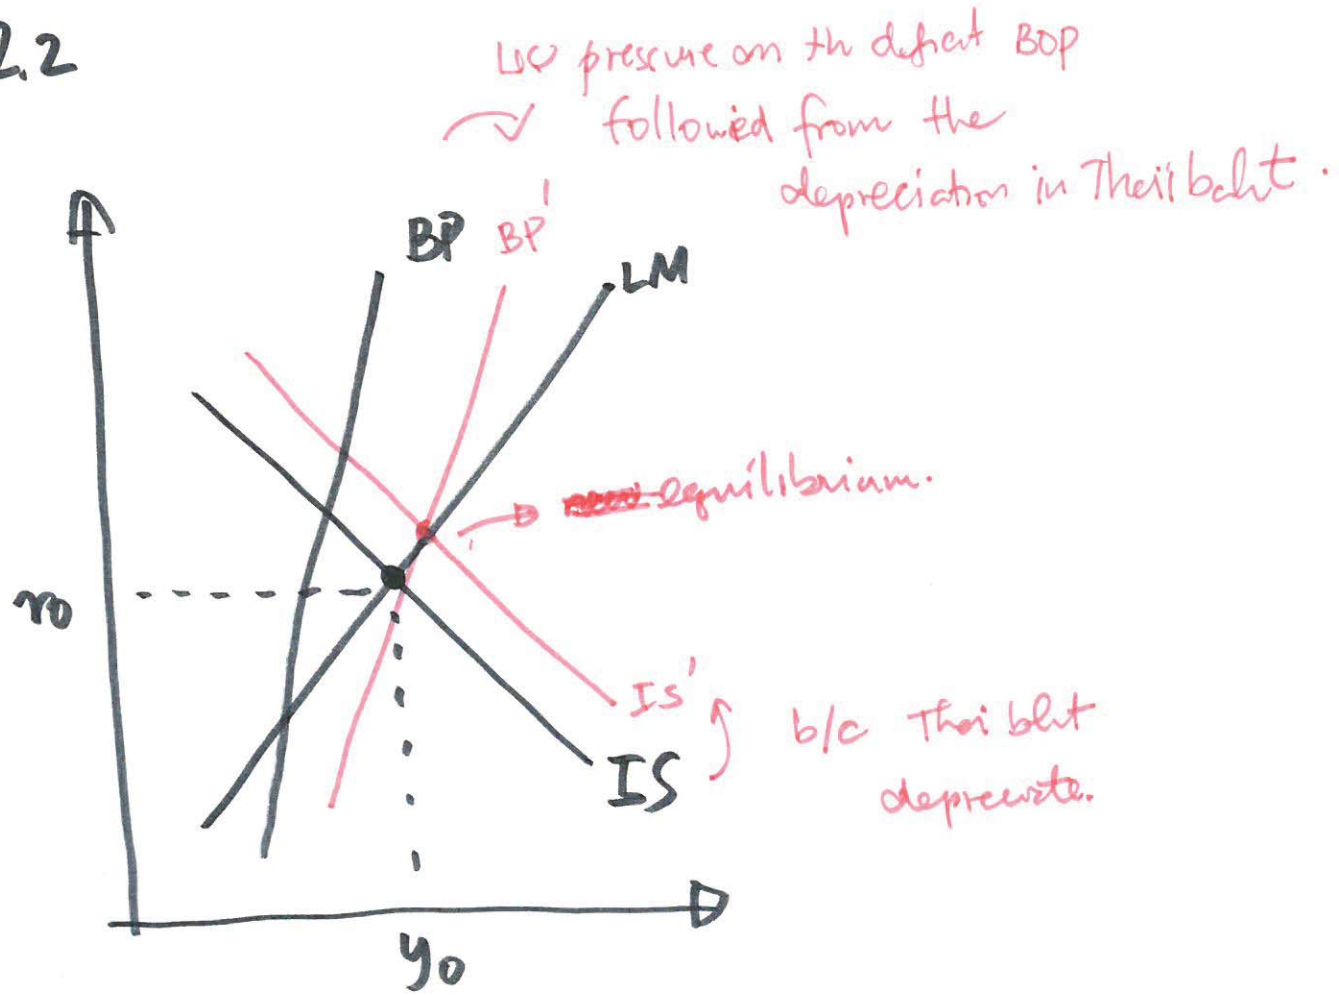 2.2
pressure on th deficit BOP
followed from the
depreciation in Thaii baht.
BP BP'
LM
equilibrium.
r0
IS'
b/c Thai baht
IS
depreciate.
y0